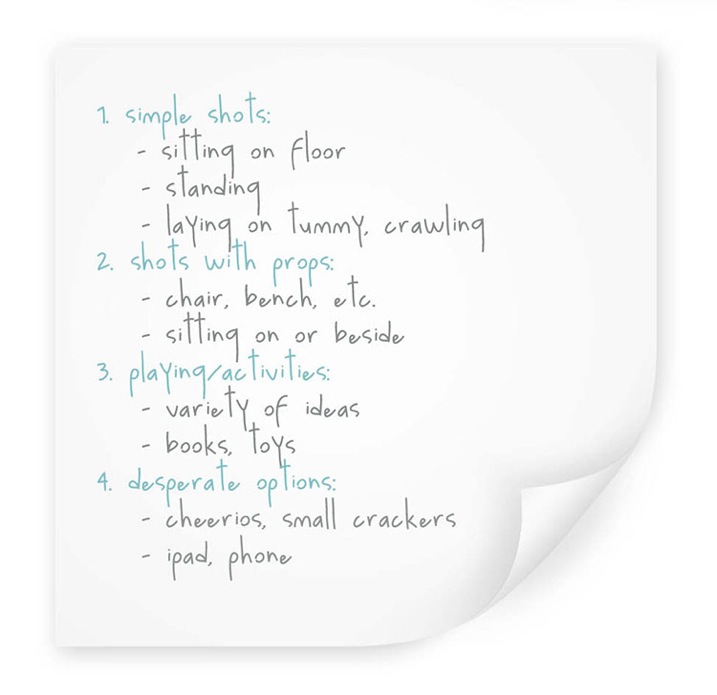 1. simple shots:
- sitting on floor
- standing
- laying on tummy, crawling
2. shots with props:
- chair, bench, etc.
- sitting on or beside
3. playing/activities:
- variety of ideas
- books, toys
4. desperate options:
- cheerios, small crackers
- ipad, phone